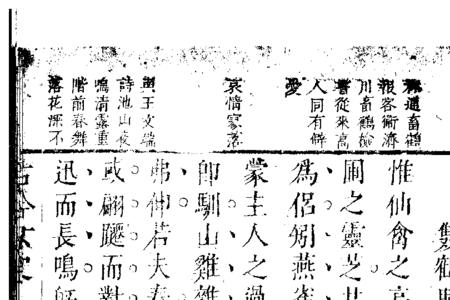 逋畜鶴
報客衛濟
川畜鶴於
署從來高
人同有癖
愛
哀情寥落
與王文端
詩池山夜
鳴清露重
階前春舞
落花深不
惟仙禽之高
圃之靈芝
爲侶矧燕雀
蒙主人之過
卽馴山雞雜
弗伸若夫春
或翩躚而對
迅而長鳴